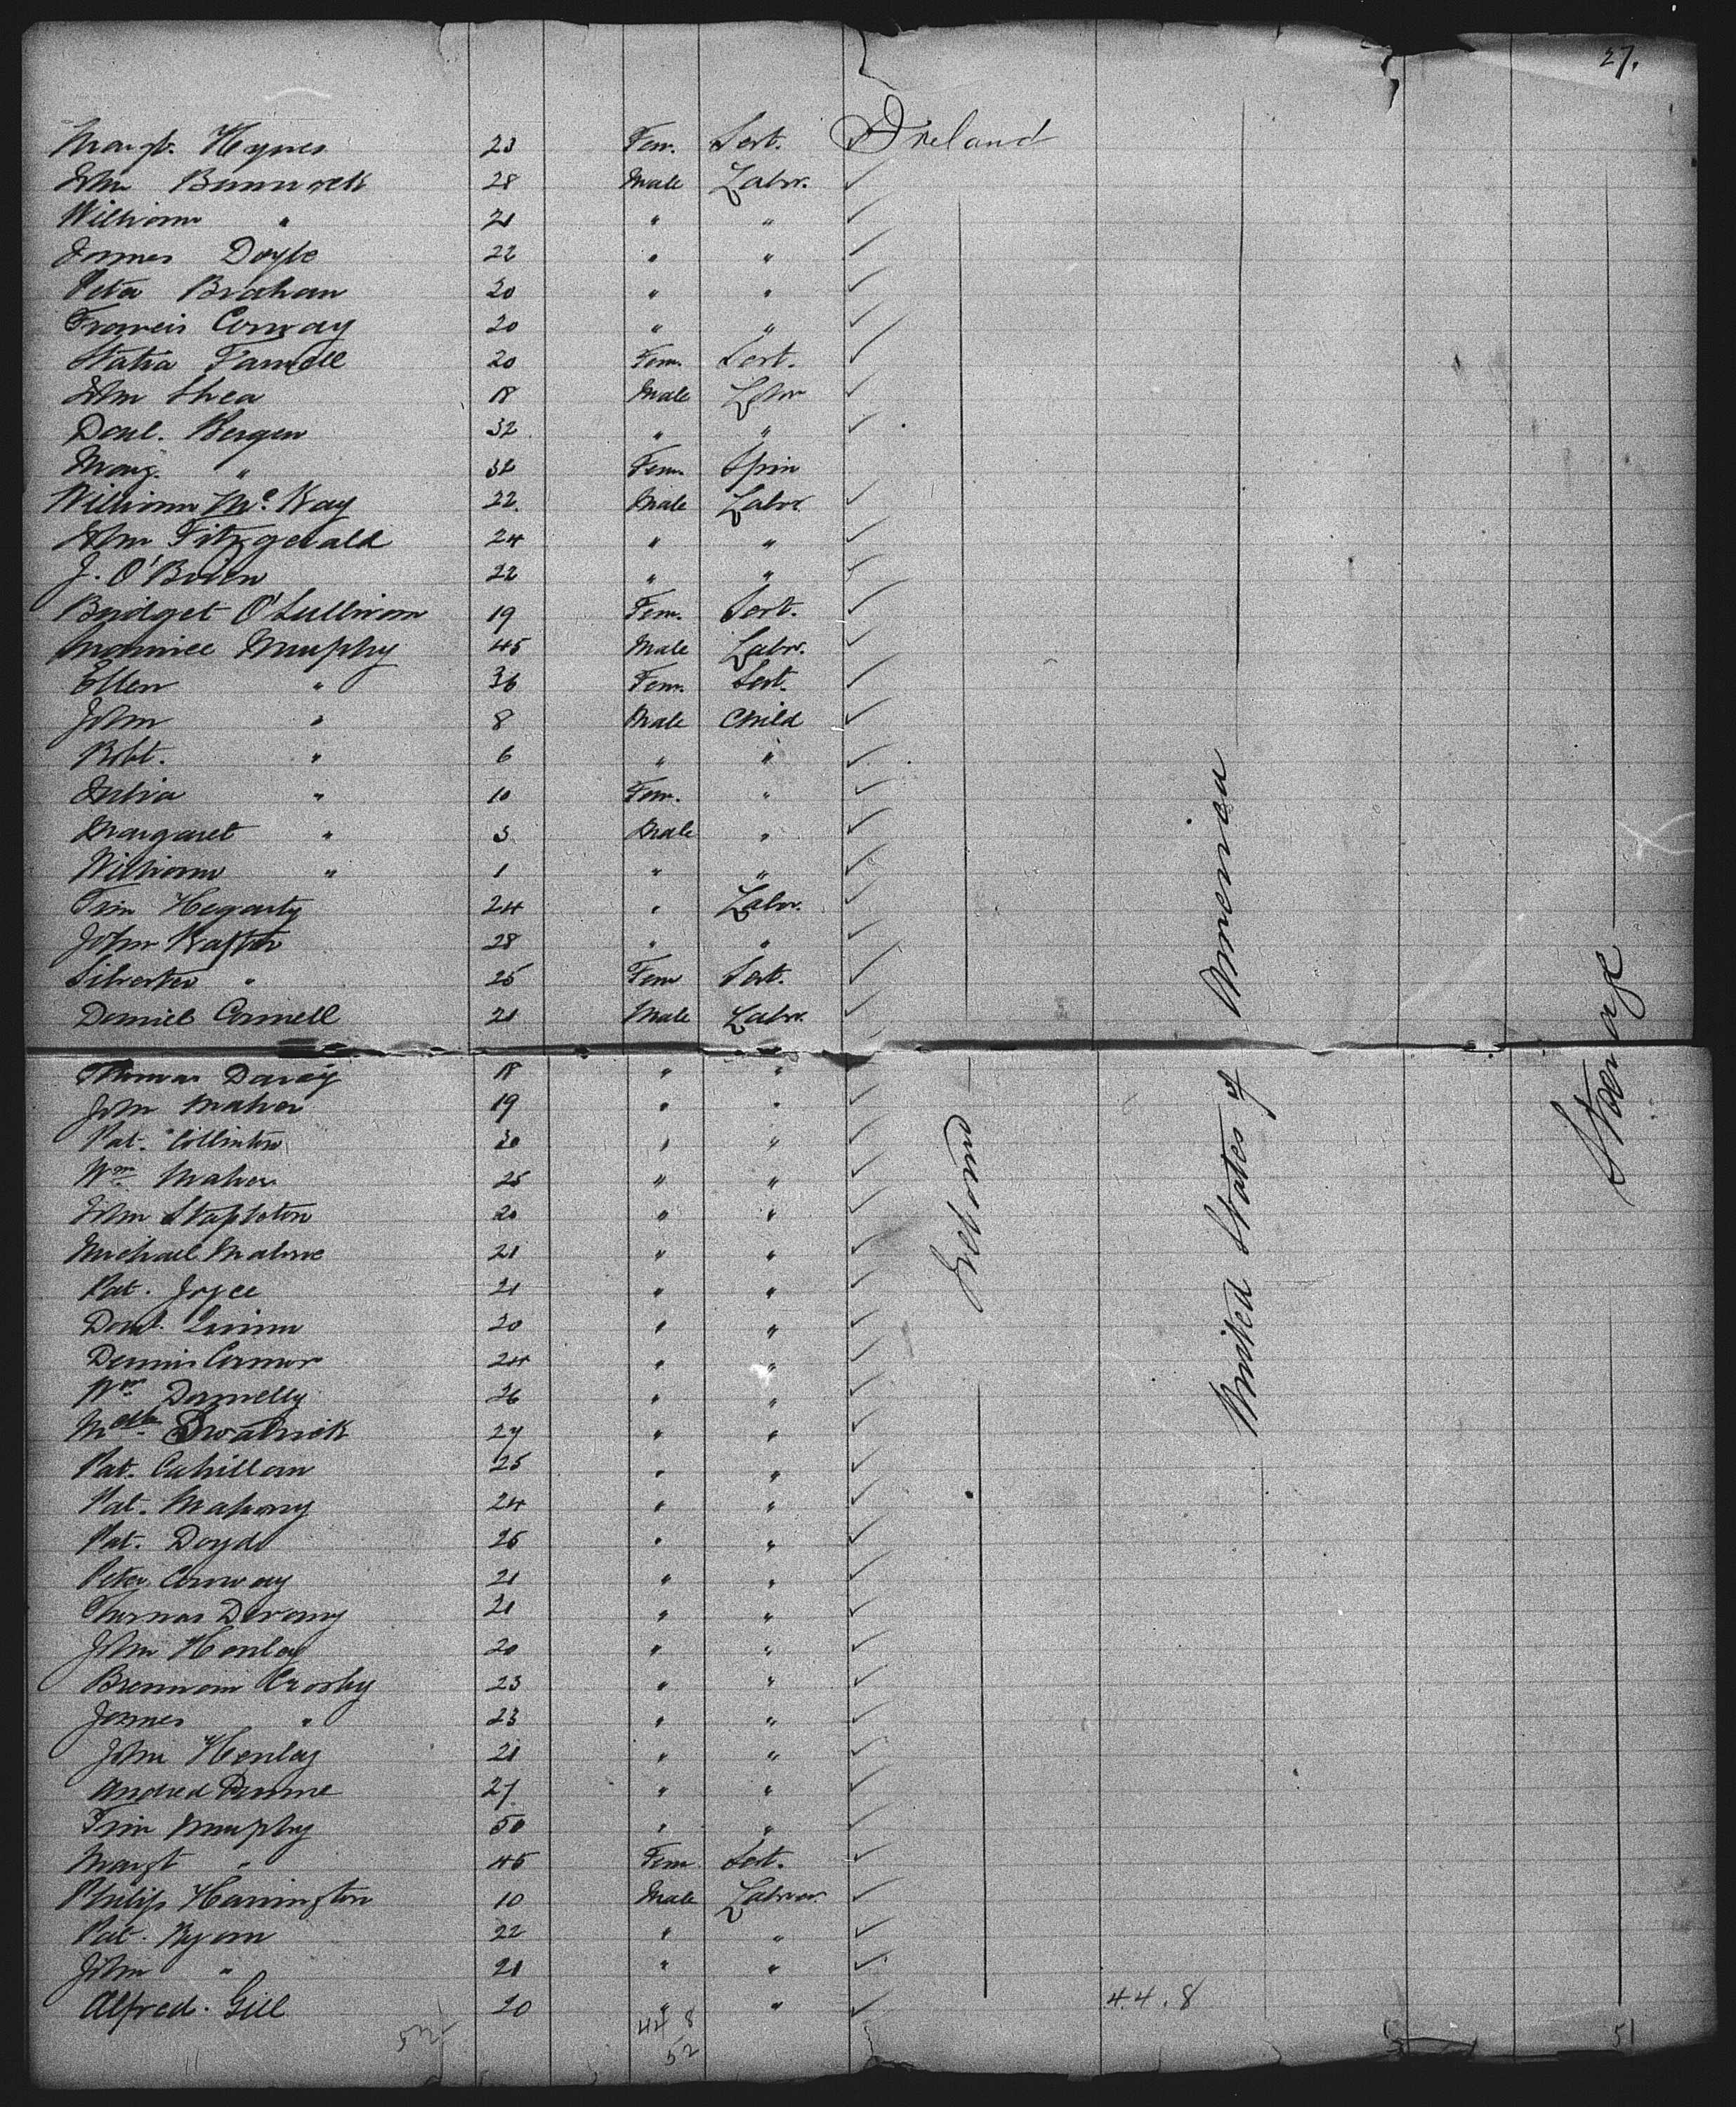 27.
Margt. Hynes 23 Fem. Sert. Ireland
John 28 Male Labr.
William " 21 " "
James Doyle 22 " "
Peter Brahan 20 " "
Francis Conway 20 " "
Statia Farrell 20 Fem. Sert.
John Shea 18 Male Labr
Danl. Bergen 32 " "
Marg. " 32 Fem. Spin
William Mc.Kay 22 Male Labr.
John Fitzgerald 24 " "
J. O'Brien 22 " "
Bridget O'Sullivan 19 Fem. Sert.
Maurice Murphy 45 Male Labr.
Ellen " 36 Fem. Sert.
John " 8 Male Child
Robt. " 6 " "
Julia " 10 Fem. "
Margaret " 3 Male "
William " 1 " "
Tim Hegarty 24 " Labr.
John 28 " "
Silvester " 25 Fem Sert.
Daniel Connell 21 Male Labr.
Thomas Davey 18 " "
John Maher 19 " "
Pat. 30 " "
Wm Maher 25 " "
John Stapleton 20 " "
Michael Malone 21 " "
Pat. Joyce 21 " "
Danl. Quinn 20 " "
Dennis Connor 24 " "
Wm Donnelly 26 " "
27 " "
Pat. Cahillan 25 " "
Pat. Mahony 24 " "
Pat. Doyd 25 " "
Peter Conway 21 " "
Thomas Devany 21 " "
John Henley 20 " "
Crosby 23 " "
James " 23 " "
John Henley 21 " "
Andrew Dunne 27. " "
Tim Murphy 50 " "
Margt " 45 Fem. Sert.
Philip Harrington 10 Male Labourer
Pat. Ryan 22 " "
John " 21 " "
Alfred. Gill 20 " "
Ireland
United States of America
Steerage
44.8
44 8
52
52
51
11